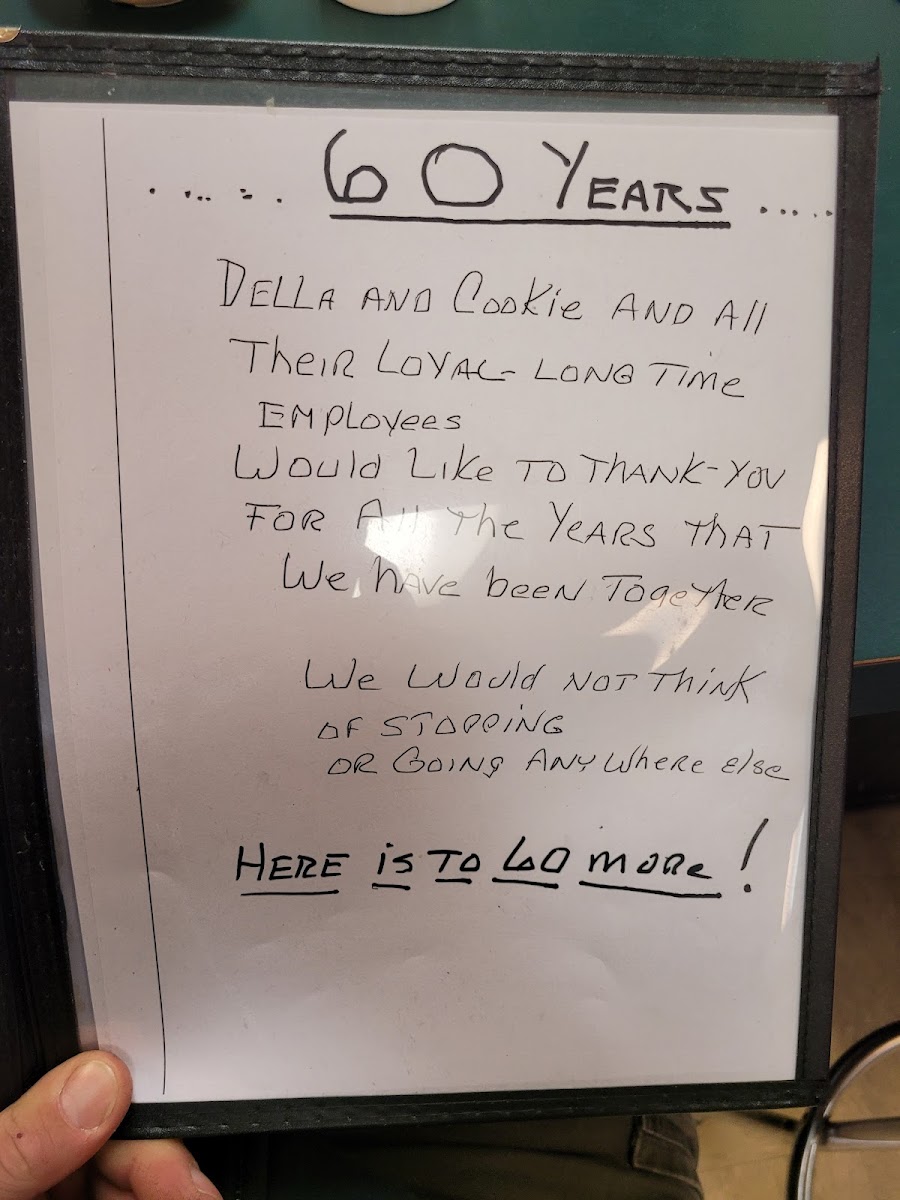 ..... 60 YEARS .....
DELLA AND COOKIE AND All
THEIR LOYAL - LONG TIME
EMPLOYEES
WOULD LIKE TO THANK-YOU
FOR All THE YEARS THAT
WE HAVE been TOGETHER
WE WOULD NOT THINK
OF STOPPING
OR GOING ANYWHERE ELSE
HERE IS TO 60 MORE!